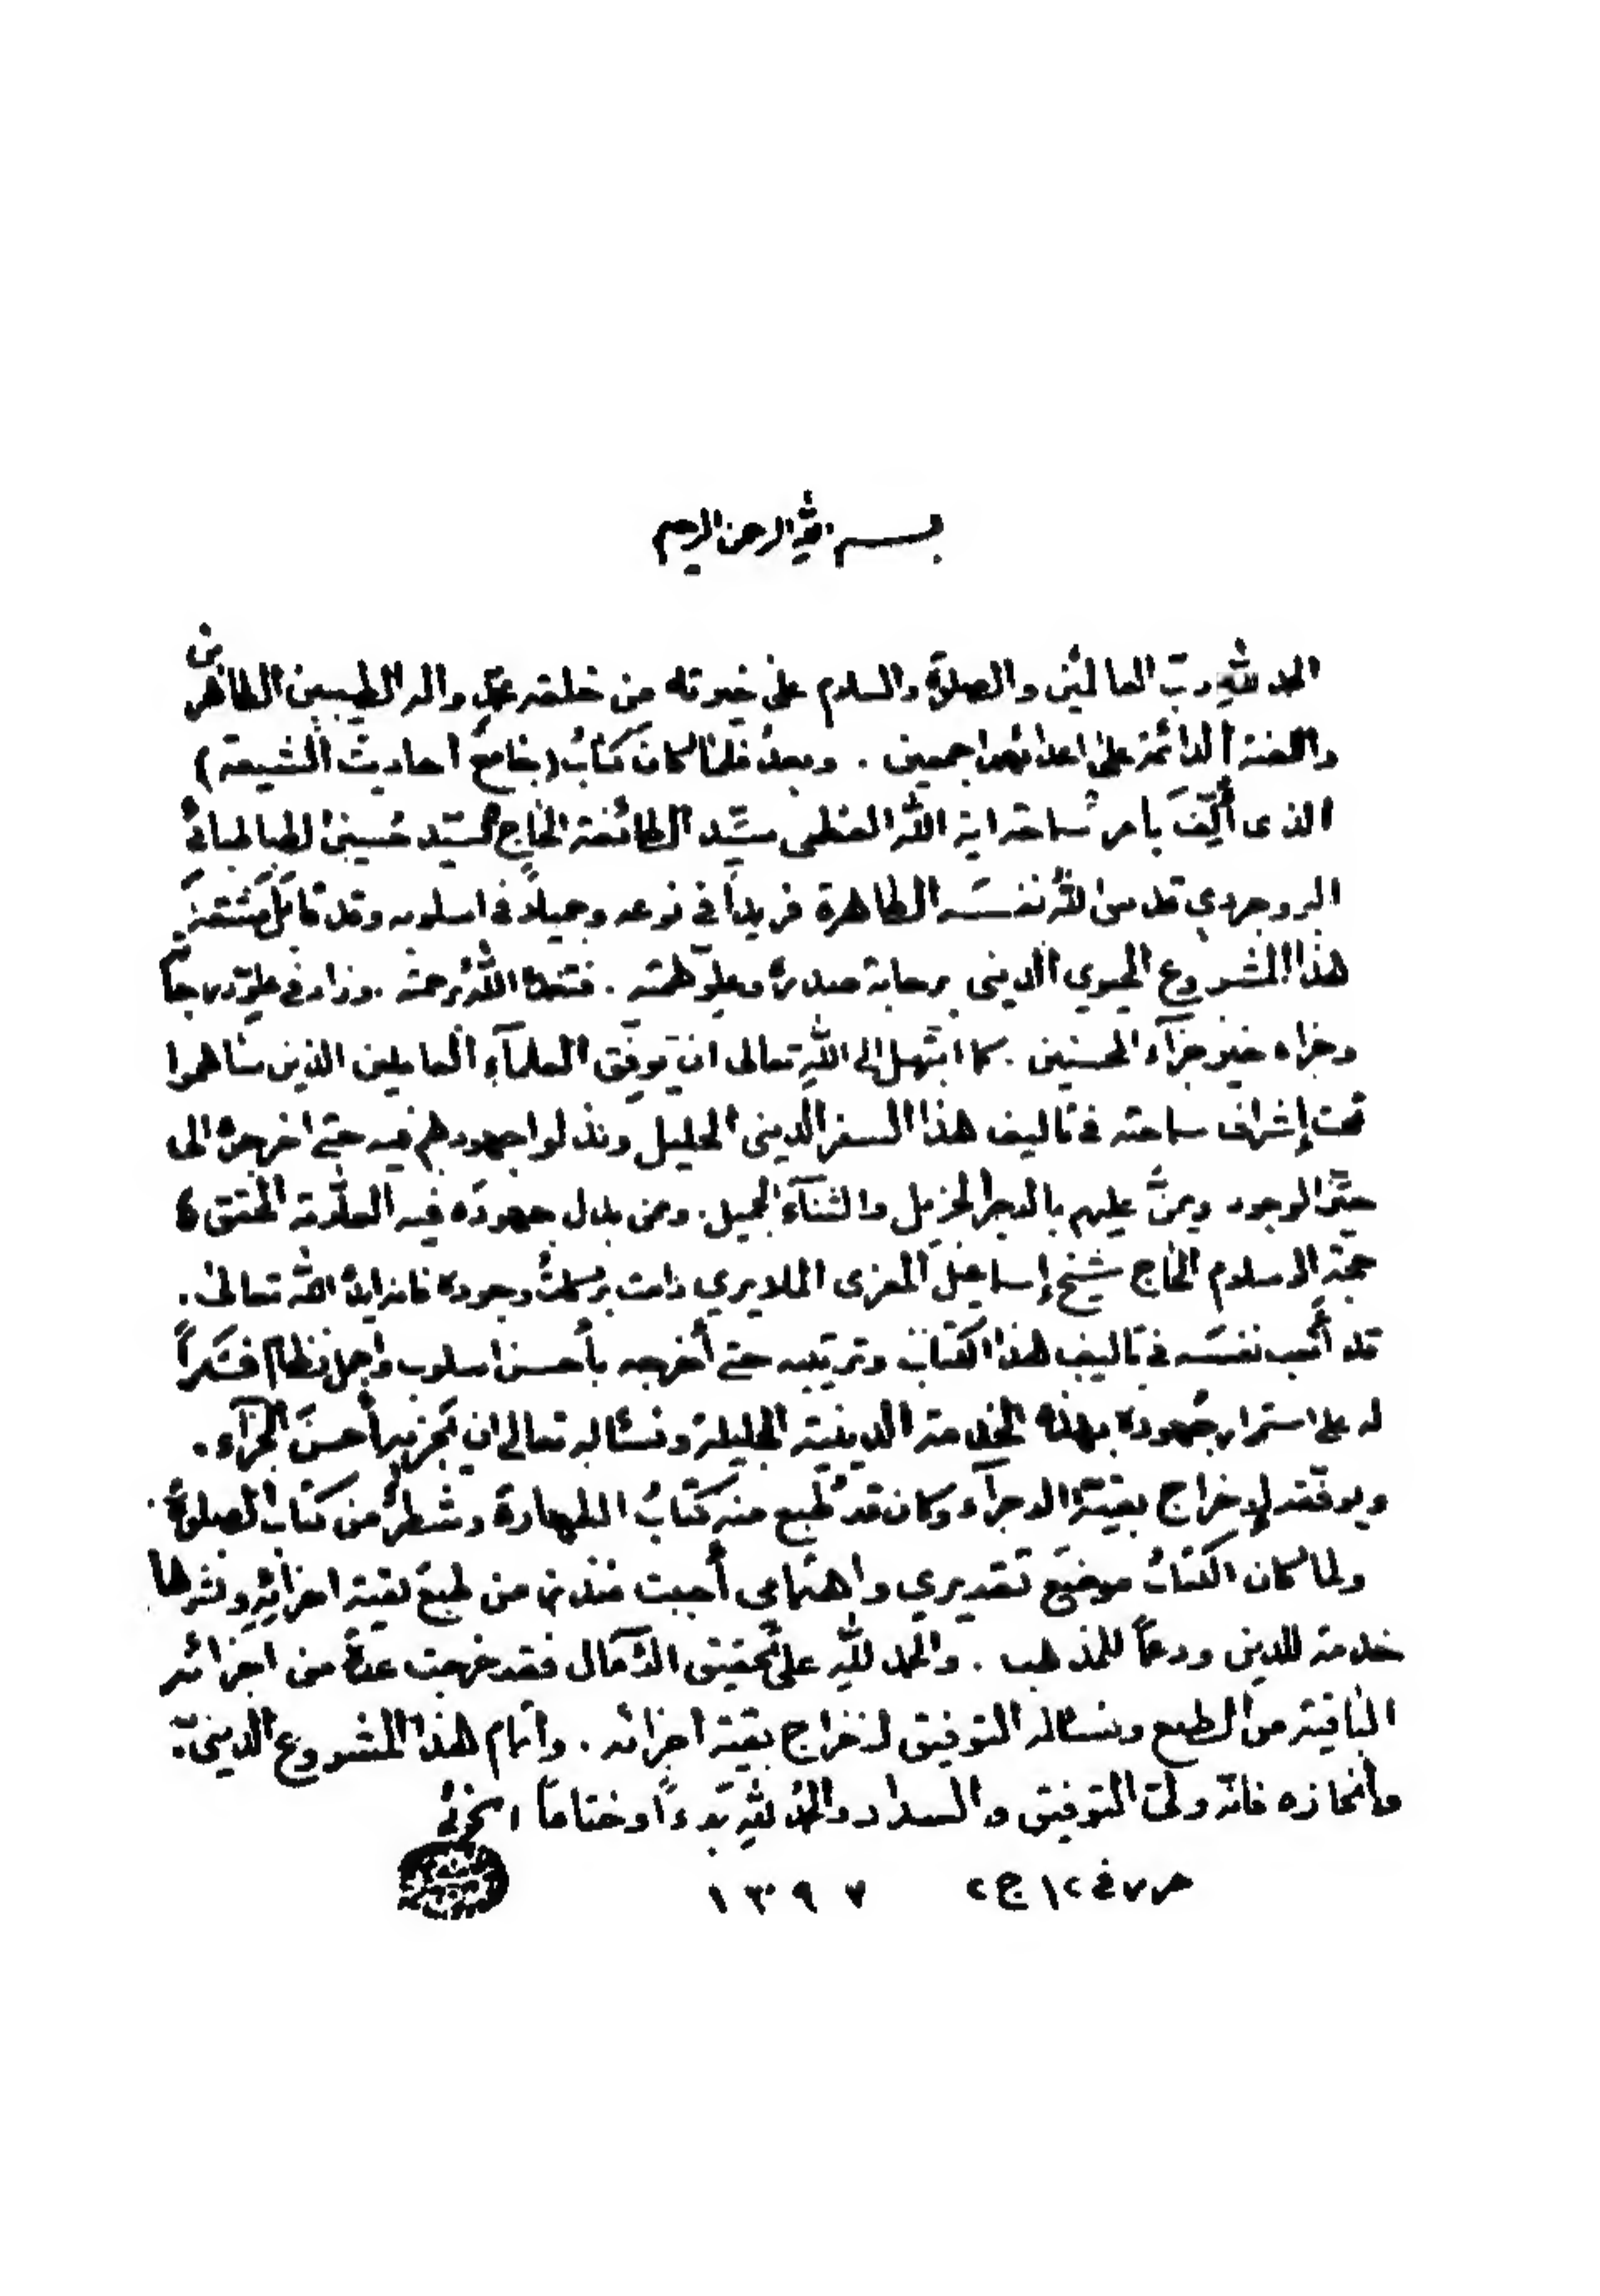 بسم الله الرحمن الرحيم
الحمد لله رب العالمين والصلاة والسلام على خيرته من خلقه محمد واله الطيبين الطاهرين
واللعنة الدائمة على اعدائهم اجمعين . وبعد فلما كان كتاب (جامع احاديث الشيعة)
الذى ألف بأمر سماحة اية الله العظمى سيد الطائفة الحاج السيد حسين الطباطبائي
البروجردي قدس الله نفسه الطاهرة فريداً في نوعه وجميلاً في اسلوبه وقد قابل
هذا المشروع الحيوي الديني برحابة صدره وعلو همته . فتغمده الله برحمته . وزاد في علو درجاته
وجزاه خير جزاء المحسنين . كما ابتهل الى الله تعالى ان يوفق العلماء العاملين الذين ساهموا
تحت إشراف سماحته في تاليف هذا السفر الديني الجليل وبذلوا جهودهم فيه حتى اخرجوه الى
حيز الوجود ويمن عليهم بالاجر الجزيل والثناء الجميل . وممن بذل جهوده فيه العلامة المحقق
حجة الاسلام الحاج شيخ إسماعيل المعزى الملايري دامت بركات وجوده فانه ايده الله تعالى .
قد أتعب نفسه في تاليف هذا الكتاب وترتيبه حتى أخرجه بأحسن اسلوب واجمل نظام فشكراً
له على استمرار جهوده بهذه الخدمة الدينية الجليلة ونسأله تعالى ان يجزيه أحسن الجزاء .
ويوفقه لإخراج بقية الاجزاء وكان قد طبع منه كتاب الطهارة وشطر من كتاب الصلوة .
ولما كان الكتاب موضع تقديري واهتمامي أحببت من طبع بقية اجزائه ونشرها
خدمة للدين ودعماً للمذهب . والحمد لله على تحقيق الآمال فقد خرجت عدة من اجزائه
الباقية من الطبع ونسأله التوفيق لاخراج بقية اجزائه . واتمام هذا المشروع الديني .
وأنجازه فانه ولي التوفيق والسداد والحمد لله بدءاً وختاماً الخوئي
حرر في ١٢ ج ٢ ١٣٩٧